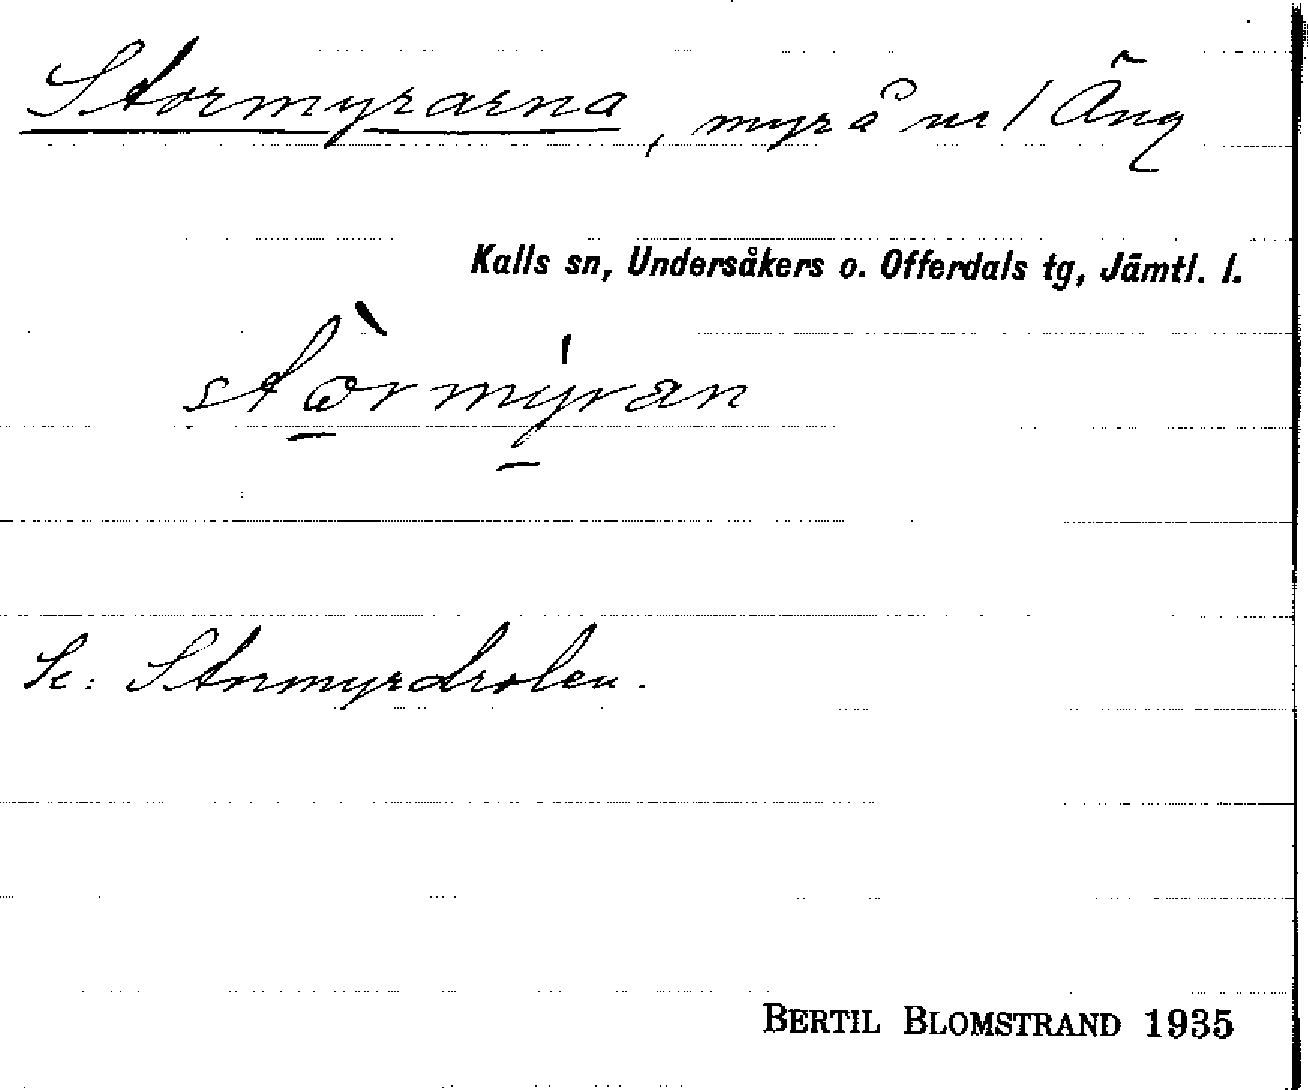 Stormyrarna, myrar nr 1 Äng
Kalls sn, Undersåkers o. Offerdals tg, Jämtl. l.
stòrmýran
Se: Stormyrdrolen.
BERTIL BLOMSTRAND 1935